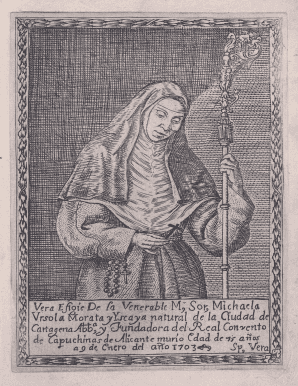 Vera Efigie De la Venerable M. Sor Michaela
Vrsola Morata y Yscaya natural de la Ciudad de
Cartagena Abb.ª y Fundadora del Real Convento
de Capuchinas de Alicante murio Edad de 75 años
a 9 de Enero del año 1703
Sp. Vera